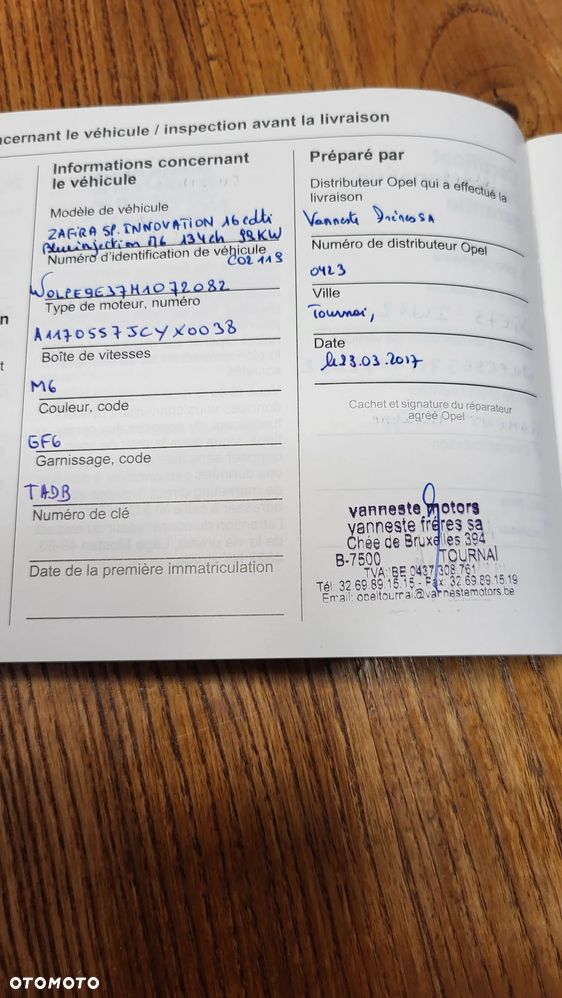 ncernant le véhicule / inspection avant la livraison
Informations concernant
le véhicule
Modèle de véhicule
ZAFIRA SP. INNOVATION 1.6 cdti
Blueinjection M6 134ch 99KW
Numéro d'identification de véhicule
CO2 119
WOLPE9E37H1072082
Type de moteur, numéro
A1170557JCYX0038
Boîte de vitesses
M6
Couleur, code
GF6
Garnissage, code
TADB
Numéro de clé
Date de la première immatriculation
Préparé par
Distributeur Opel qui a effectué la
livraison
Vanneste Frères SA
Numéro de distributeur Opel
0423
Ville
Tournai,
Date
le 23.03.2017
Cachet et signature du réparateur
agréé Opel
vanneste motors
vanneste frères sa
Chée de Bruxelles 394
B-7500 TOURNAI
TVA: BE 0437 308 761
Tél: 32.69.89.15.15 - Fax: 32.69.89.15.19
Email: opeltournai@vannestemotors.be
n
t
OTOMOTO